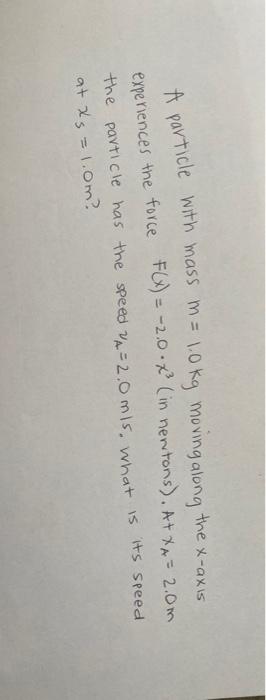 A particle with mass m = 1.0 kg moving along the x-axis
experiences the force F(x) = -2.0 · x³ (in newtons). At x_A = 2.0m
the particle has the speed v_A = 2.0 m/s. What is its speed
at x_s = 1.0m?